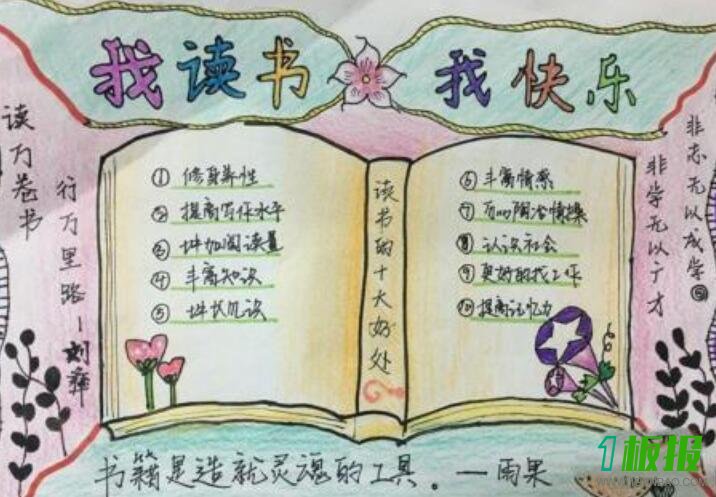 我读书 我快乐
读万卷书
行万里路—刘彝
读书的十大好处
①修身养性
②提高写作水平
③增加阅读量
④丰富知识
⑤增长见识
⑥丰富情感
⑦可以陶冶情操
⑧认识社会
⑨更好的找工作
⑩提高记忆力
非志无以成学
非学无以广才
书籍是造就灵魂的工具。—雨果
1板报